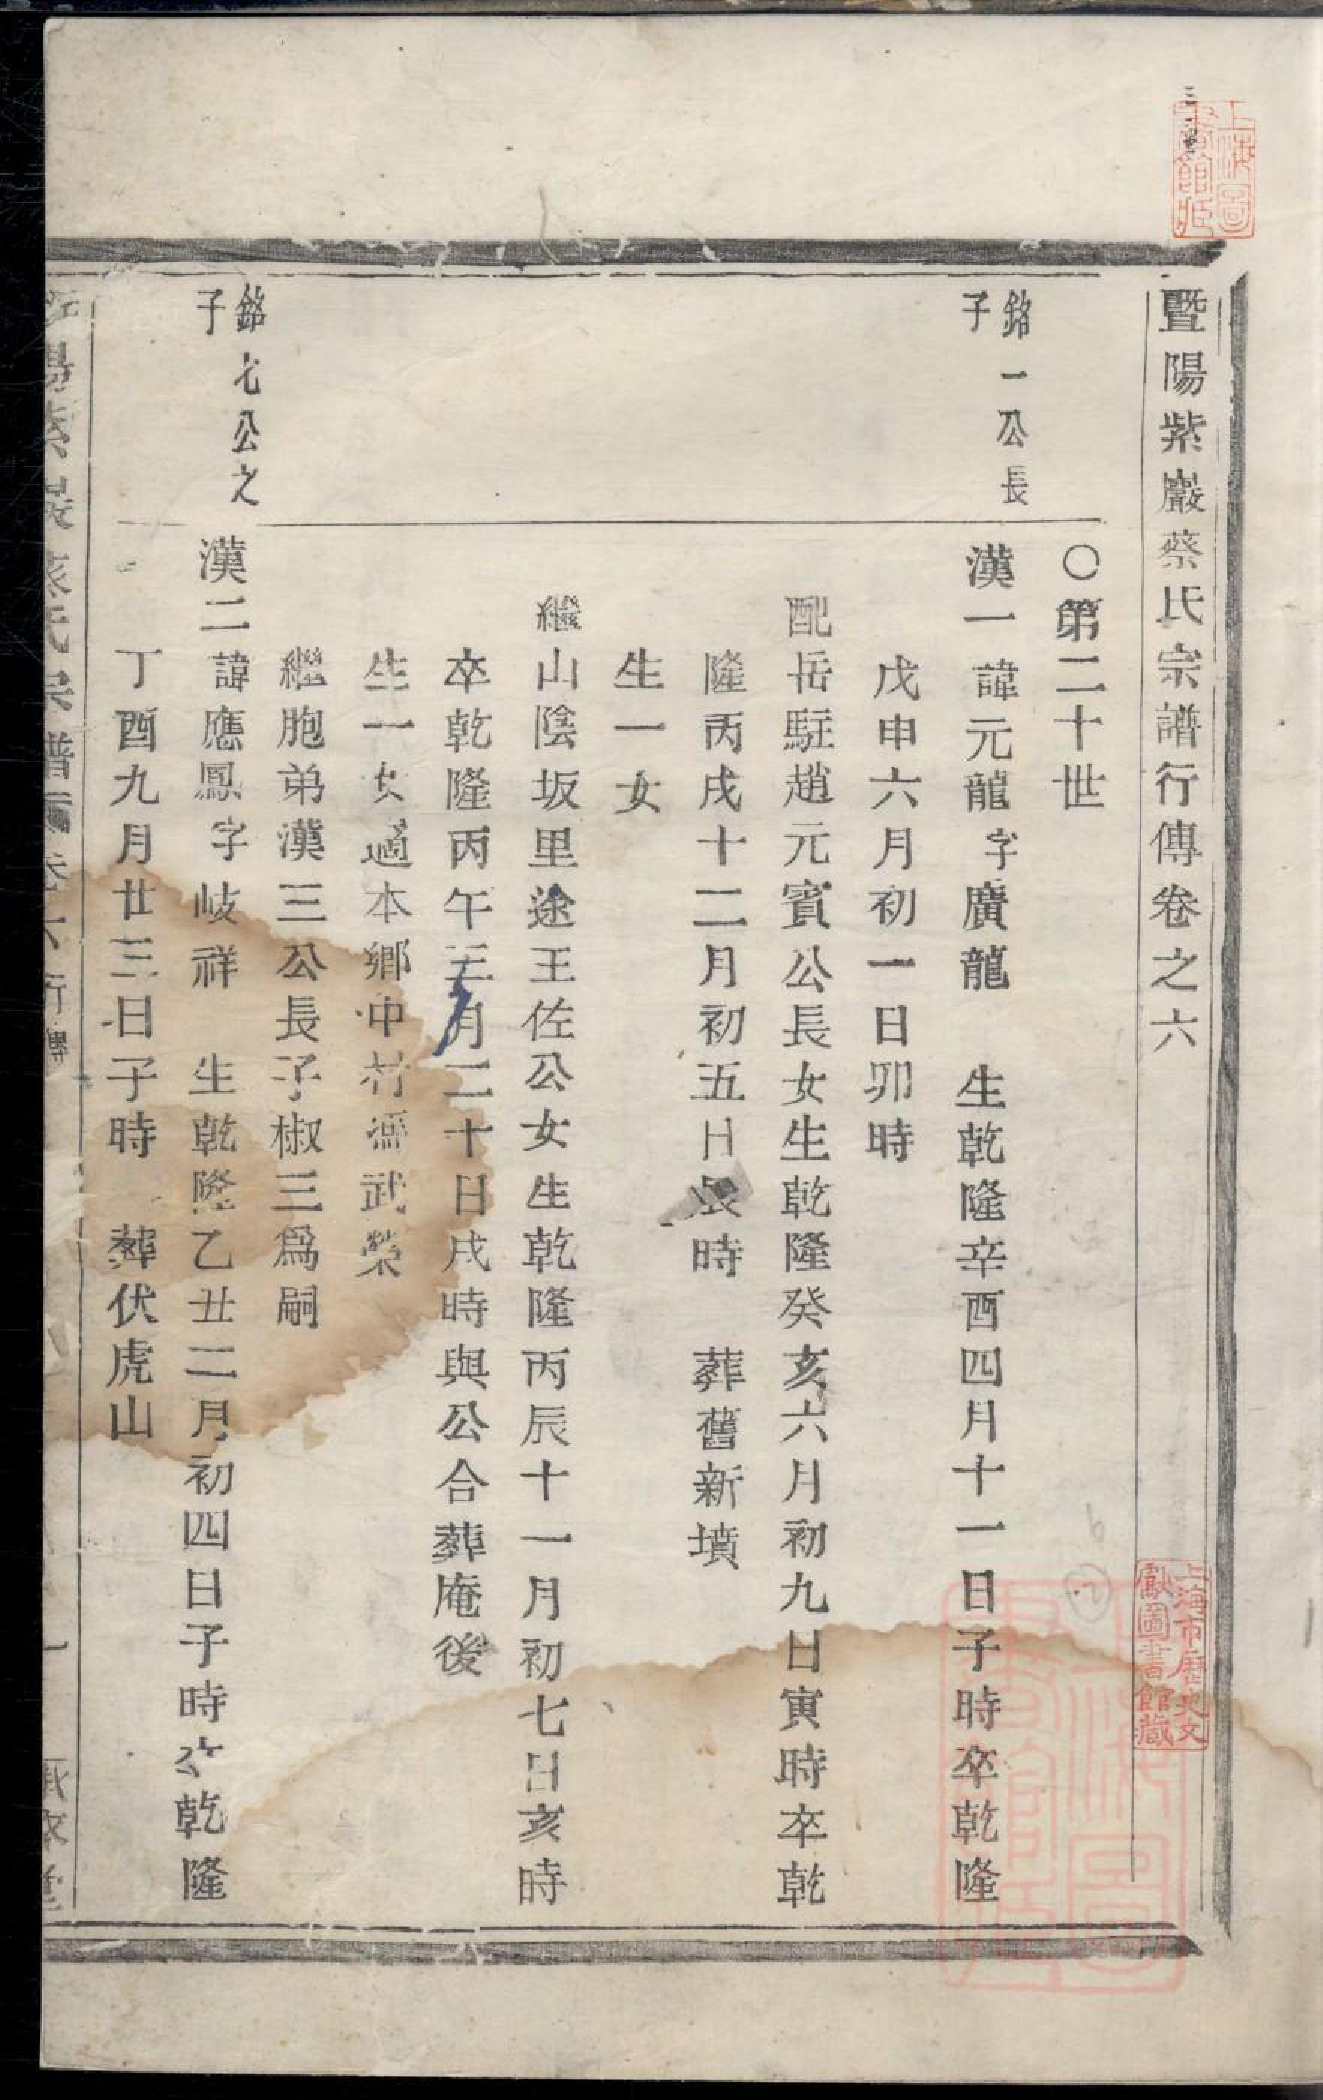 暨陽紫巖蔡氏宗譜行傳卷之六
〇第二十世
銘一公長
子
漢一諱元龍字廣龍 生乾隆辛酉四月十一日子時卒乾隆
戊申六月初一日卯時
配岳駐趙元賓公長女生乾隆癸亥六月初九日寅時卒乾
隆丙戌十二月初五日辰時 葬舊新墳
生一女
繼山陰坂里途王佐公女生乾隆丙辰十一月初七日亥時
卒乾隆丙午三月二十日戌時與公合葬庵後
生一女適本鄉中村 武榮
繼胞弟漢三公長子椒三為嗣
銘七公之
子
漢二諱應鳳字岐祥 生乾隆乙丑二月初四日子時卒乾隆
丁酉九月廿三日子時 葬伏虎山
暨陽紫巖蔡氏宗譜 卷六行傳 一
上海圖書館藏
上海市歷史文獻圖書館藏
上海圖書館藏